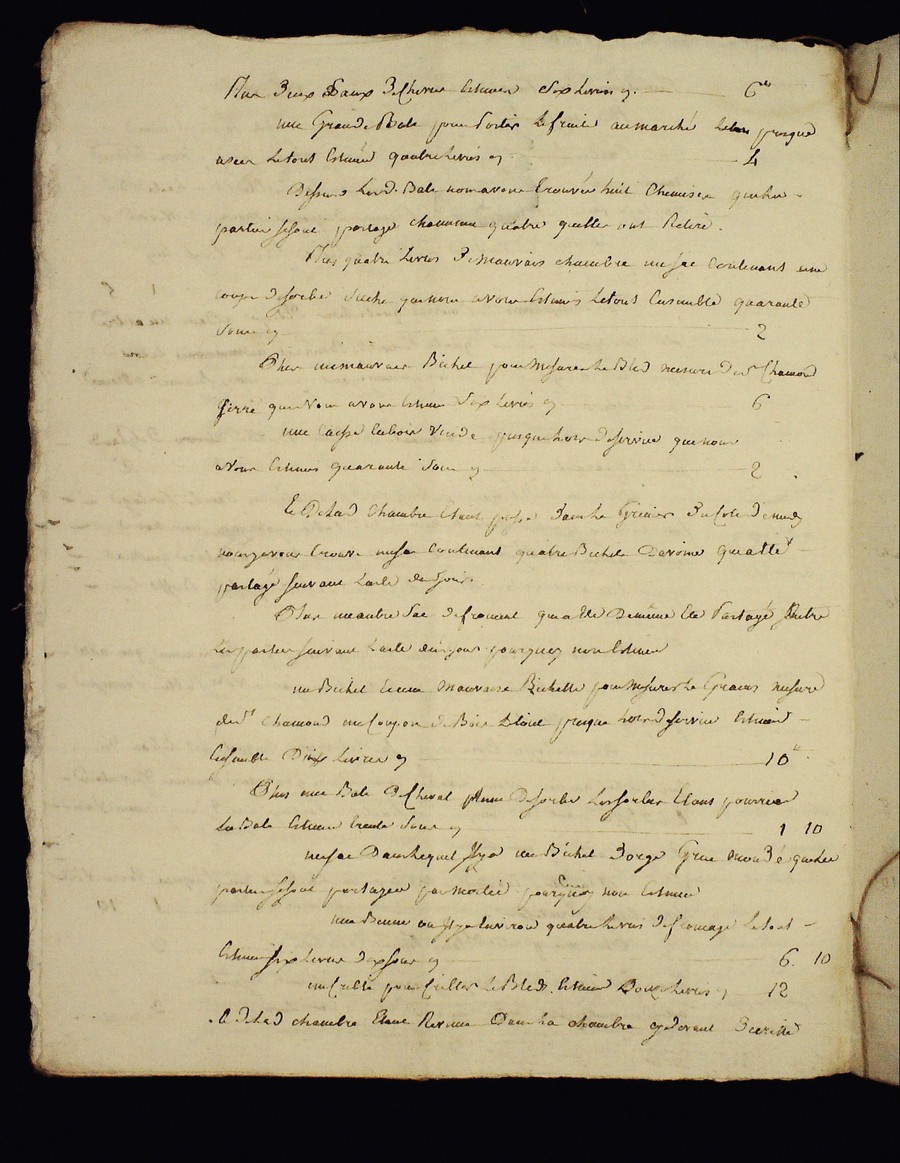 Plus deux Peaux de Chevre Estimées Six Livres cy. 6ᵗᵗ
une Grande Bale pour Porter Le fruit au marché presque
usée Le tout Estimé quatre Livres cy 4
Dessus Lad. Bale nous avons trouvé huit Chemises que les
parties se sont partagé chacune quatre qu'elles ont Retiré.
Plus quatre Livres de mauvais chambre un sac Contenant une
coupe de sorbe seche que nous avons Estimés Le tout Ensemble quarante
sous cy 2
Plus un mauvais Bichet pour Mesurer Le Bled mesure de Sᵗ Chamond
ferré que nous avons Estimé Six Livres cy 6
une Caisse En bois vuide presque hors de service que nous
avons Estimés quarante Sous cy 2
Et De Lad Chambre Etant passé Dans Le Grenier Du Coté
nous y avons trouvé un sac Contenant quatre Bichets Davoine qui a Eté
partagé suivant Lacte
Plus un autre Sac de froment qui a Eté De même Eté Partagé Entre
Les parties suivant Lacte pourquoy non Estimé
un Bichet Et une Mauvaise Bichette pour Mesurer Le Grains mesure
de Sᵗ Chamond un Coupon de Bois presque hors de service Estimés
Ensemble Dix Livres cy 10ᵗᵗ
Plus une Bale de Cheval pleine de sorbe Les sorbes Etant pourries
La Bale Estimée trente Sous cy 1 10
un sac Dans Lequel Il y a un Bichet Dorge Grue Mondé que les
parties se sont partagées par moitié pourquoy non Estimé
une Benne ou Il y a Environ quatre Livres de fromage Le tout
Estimé six Livres dix sous cy 6. 10
un Crible pour Cribler Le Bled Estimé Douze Livres cy 12
& De Lad chambre Etant Revenu Dans La chambre cy devant